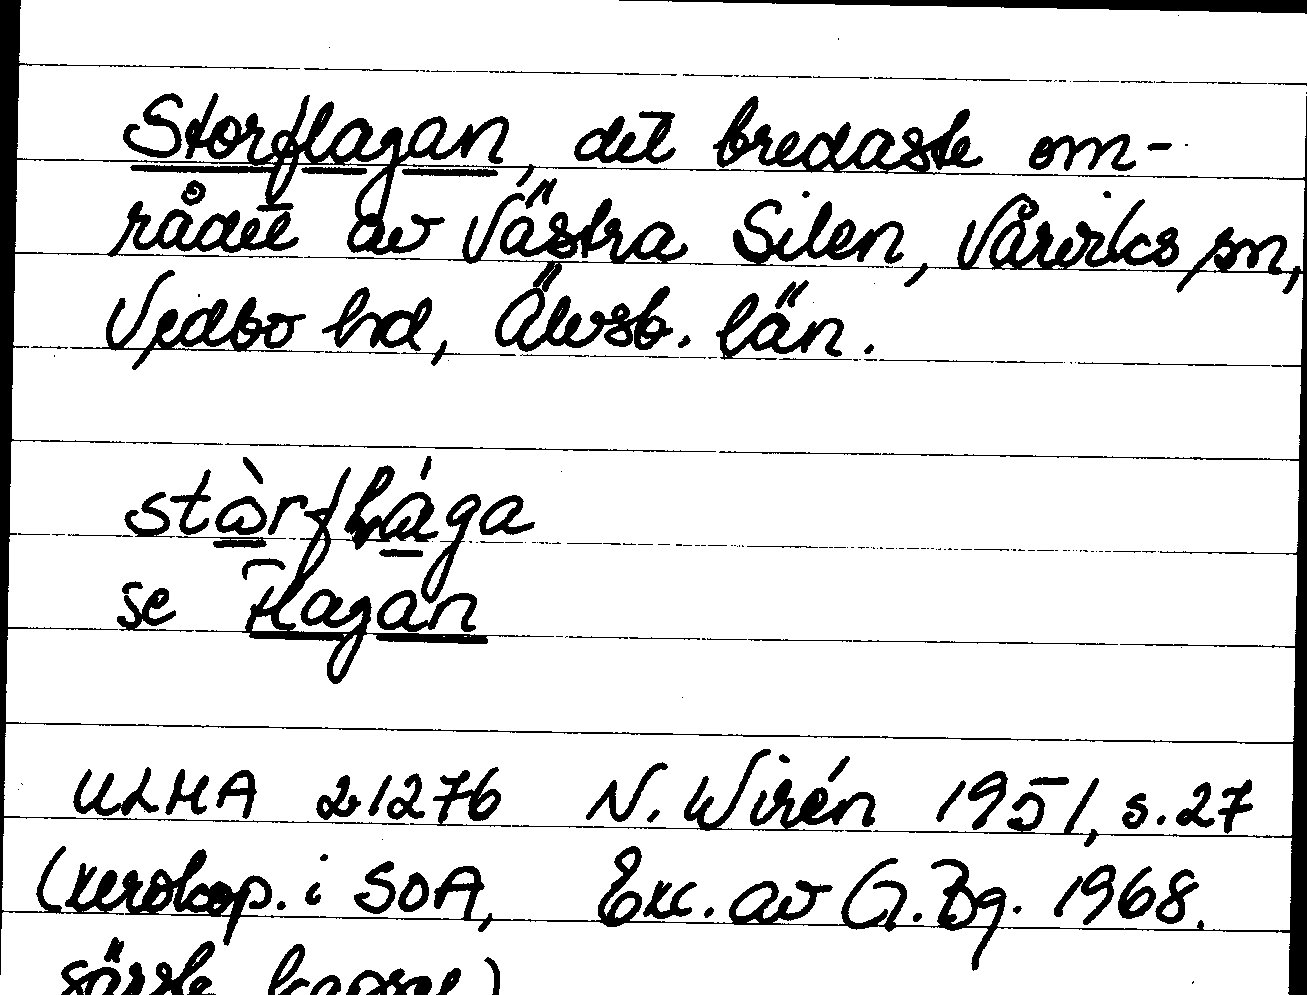 Storflagan, det bredaste om-
rådet av Västra Silen, Vårviks sn,
Vedbo hd, Älvsb. län.
stòrflága
se Flagan
ULMA 21276 N. Wirén 1951, s. 27
(xerokop. i SOA, Exc. av G. Bg. 1968.
särsk. kapsel)